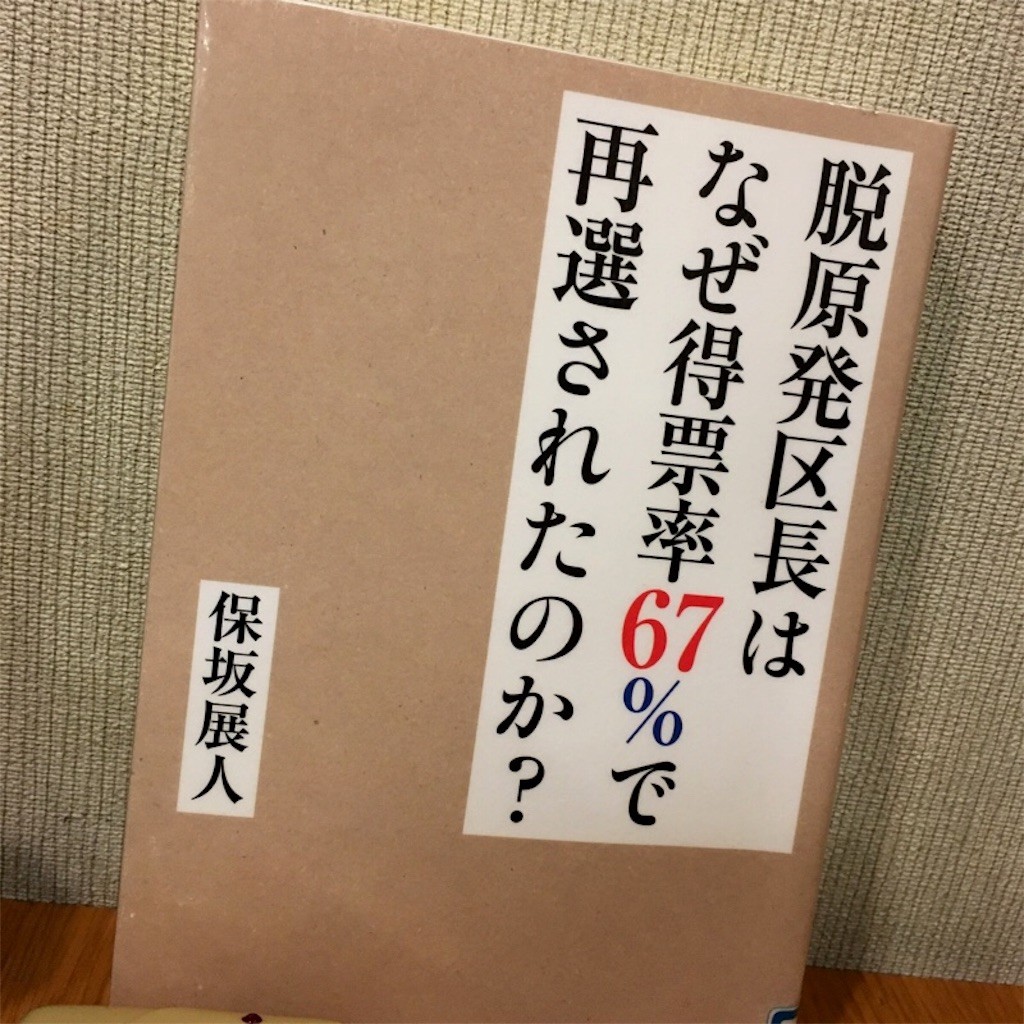 脱原発区長は
なぜ得票率67%で
再選されたのか?
保坂展人